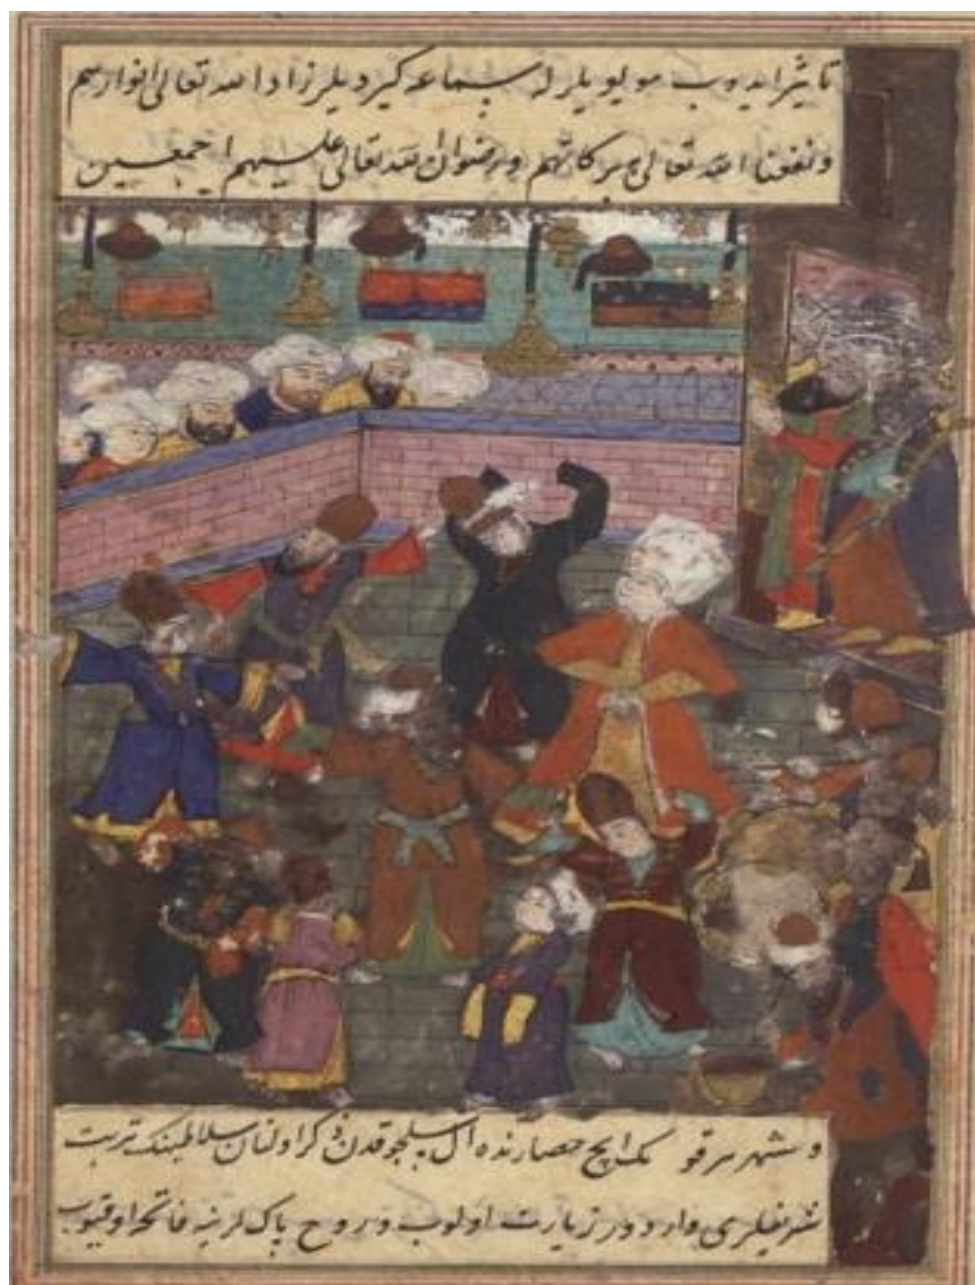 تاثیر ایدوب مولویلر له سماعه کیردیلر زاد الله تعالی انوارهم
ونفعنا الله تعالی ببرکاتهم ورضوان الله تعالی علیهم اجمعین
وشهر مرقومک ایچ حصارنده آل سلجوقدن ذکر اولنان سلاطینک تربت
شریفلری واردور زیارت اولوب وروح پاکلرینه فاتحه اوقیوب